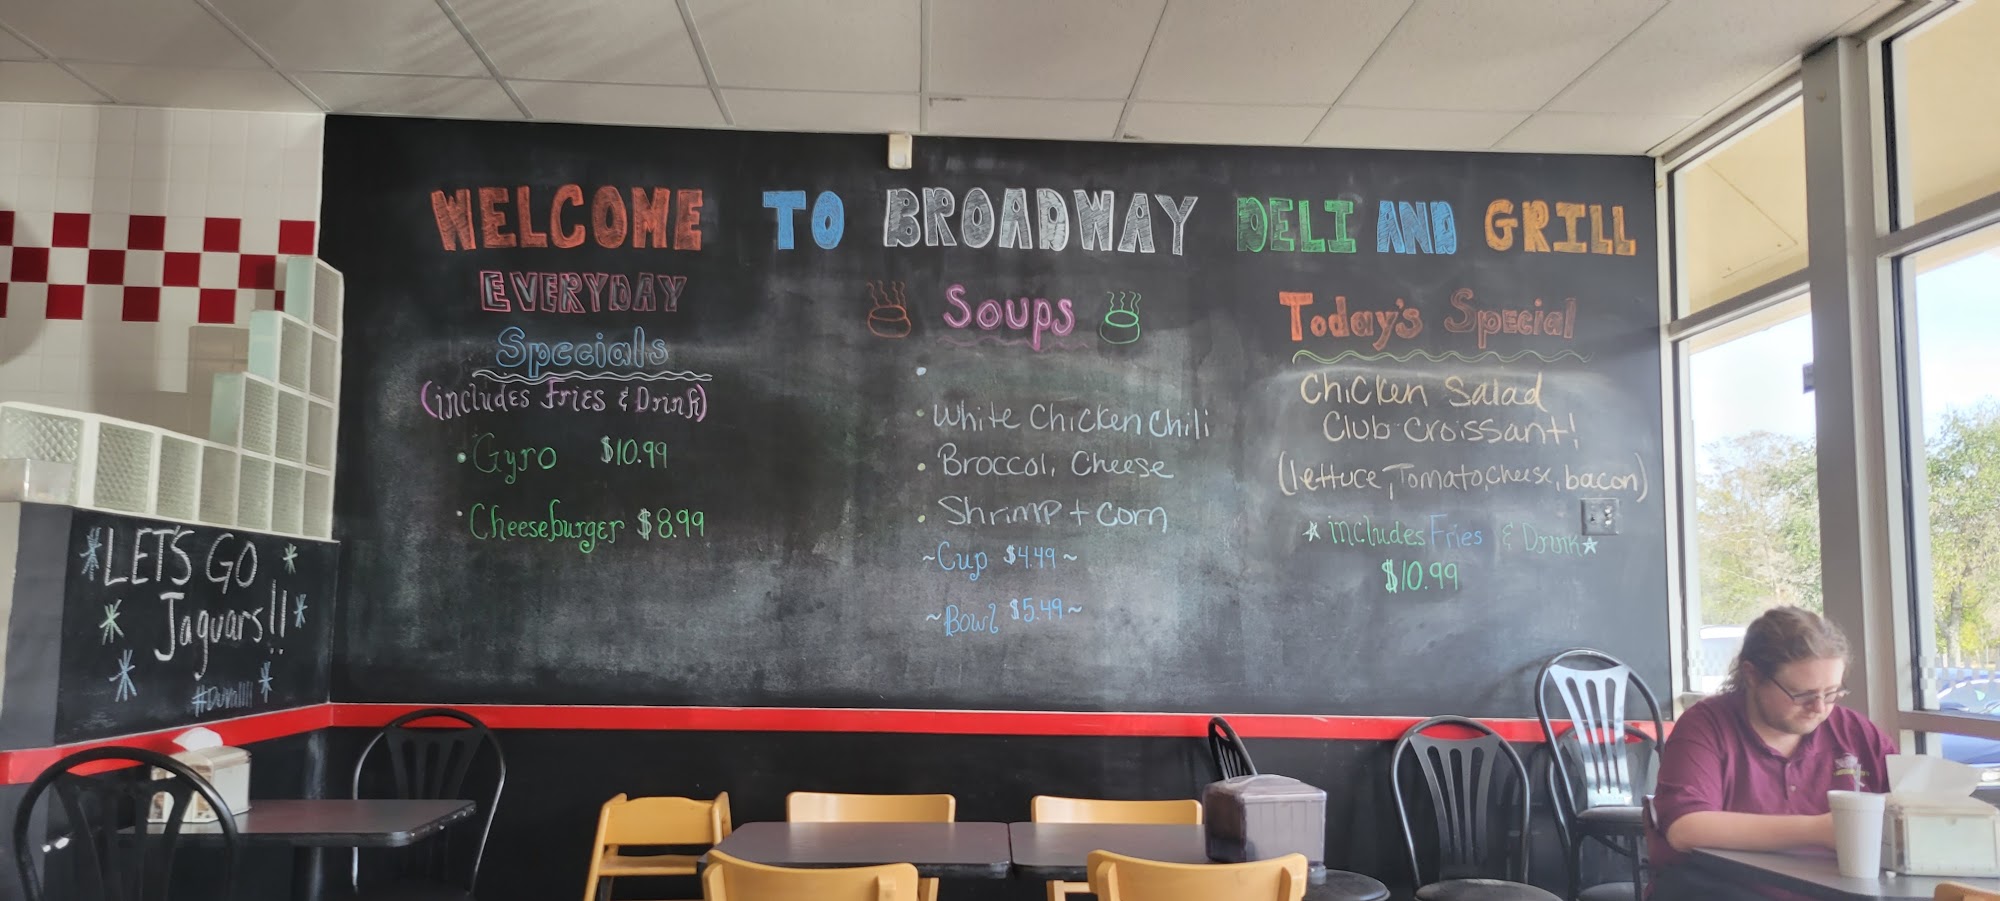 WELCOME TO BROADWAY DELI AND GRILL
EVERYDAY
Specials
(includes Fries & Drink)
• Gyro $10.99
• Cheeseburger $8.99
Soups
•
• White Chicken Chili
• Broccoli Cheese
• Shrimp + Corn
~Cup $4.49~
~Bowl $5.49~
Today's Special
Chicken Salad
Club Croissant!
(lettuce, Tomato, cheese, bacon)
☆ includes Fries & Drink ☆
$10.99
LET'S GO
Jaguars!!